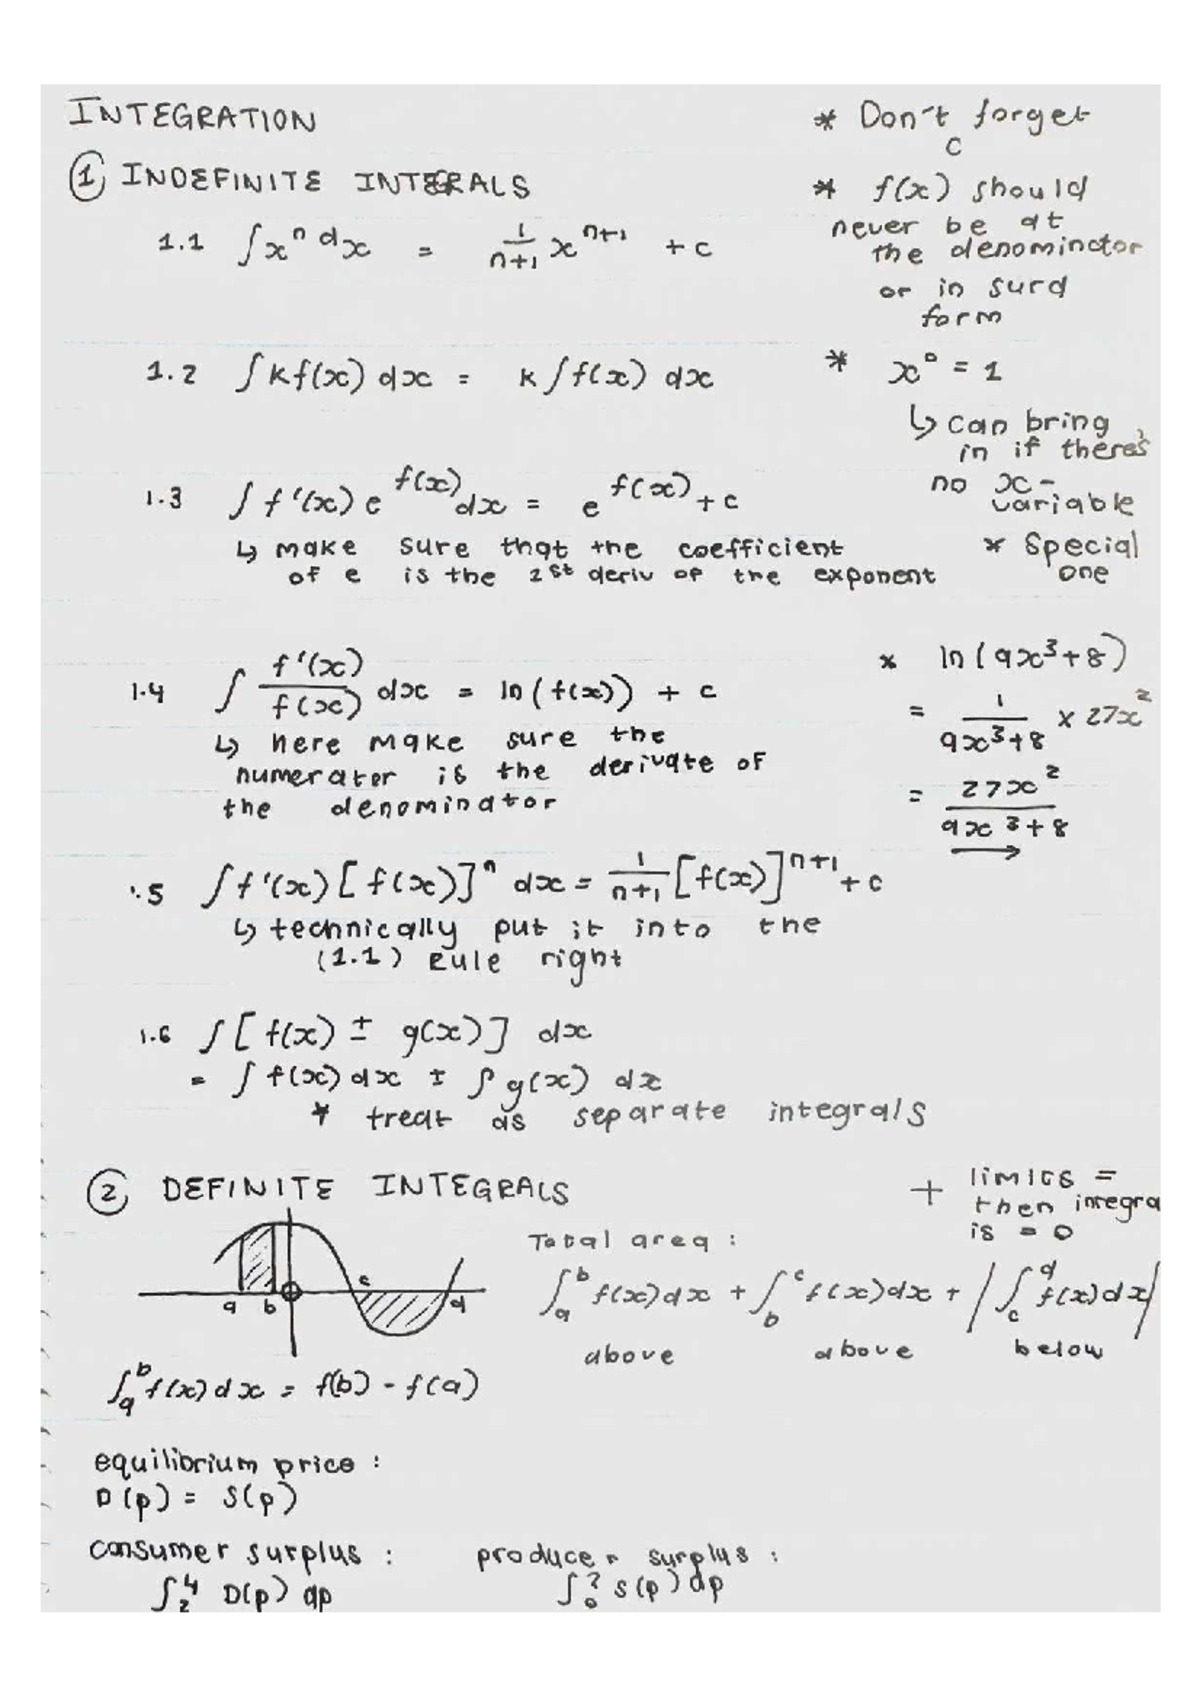 INTEGRATION
* Don't forget
c
① INDEFINITE INTEGRALS
* f(x) should
never be at
the denominator
or in surd
form
1.1 ∫xⁿ dx = 1/(n+1) xⁿ⁺¹ + c
1.2 ∫kf(x) dx = k∫f(x) dx
* x⁰ = 1
↳ can bring
in if there's
no x-
variable
1.3 ∫f'(x) e^f(x) dx = e^f(x) + c
↳ make sure that the coefficient
of e is the 1st deriv of the exponent
* special
one
1.4 ∫ f'(x)/f(x) dx = ln(f(x)) + c
↳ here make sure the
numerator is the derivate of
the denominator
* ln(9x³+8)
= 1/(9x³+8) x 27x²
= 27x²/(9x³+8)
1.5 ∫f'(x)[f(x)]ⁿ dx = 1/(n+1) [f(x)]ⁿ⁺¹ + c
↳ technically put it into the
(1.1) rule right
1.6 ∫[f(x) ± g(x)] dx
= ∫f(x) dx ± ∫g(x) dx
* treat as separate integrals
② DEFINITE INTEGRALS
+ limits =
then integra
is = 0
a b c d
Total area :
∫ₐᵇ f(x)dx + ∫_b^c f(x)dx + |∫_c^d f(x)dx|
above above below
∫ₐᵇ f(x)dx = f(b) - f(a)
equilibrium price :
D(p) = S(p)
consumer surplus : producer surplus :
∫₂⁴ D(p) dp ∫₀² S(p) dp